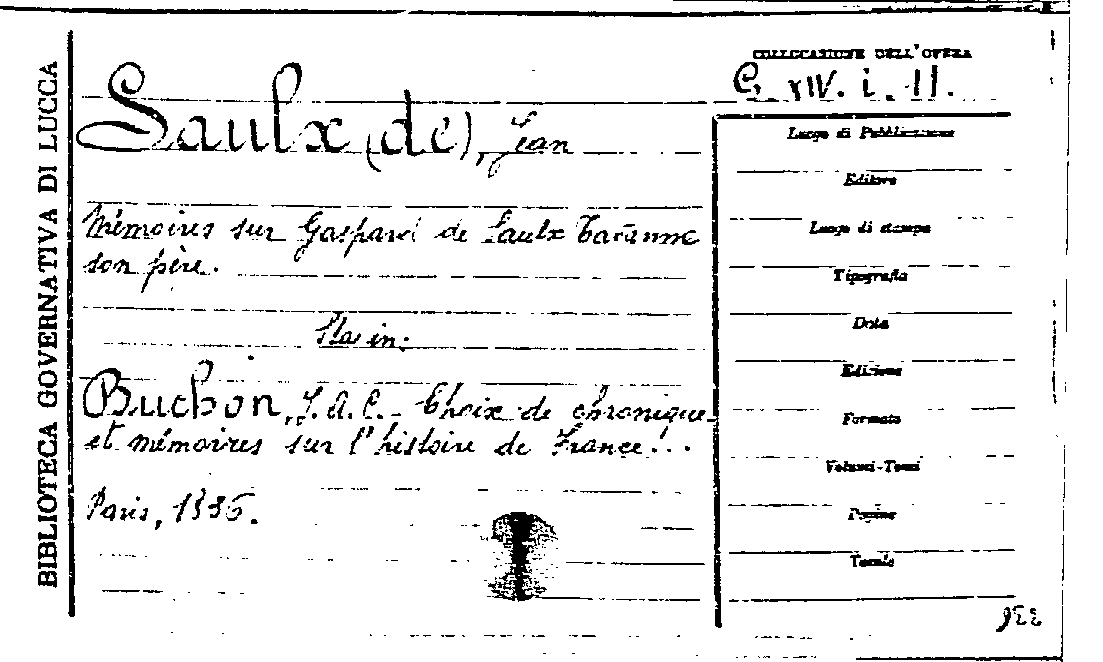 BIBLIOTECA GOVERNATIVA DI LUCCA
COLLOCAZIONE DELL'OPERA
C. XIV. i. 11.
Saulx (de), Jean
Mémoires sur Gaspard de Saulx Tavanne
son père.
Sta in:
Buchon, J. A. C. - Choix de chronique
et mémoires sur l'histoire de France!..
Paris, 1836.
Luogo di Pubblicazione
Editore
Luogo di stampa
Tipografia
Data
Edizione
Formato
Volumi-Tomi
Pagine
Tavole